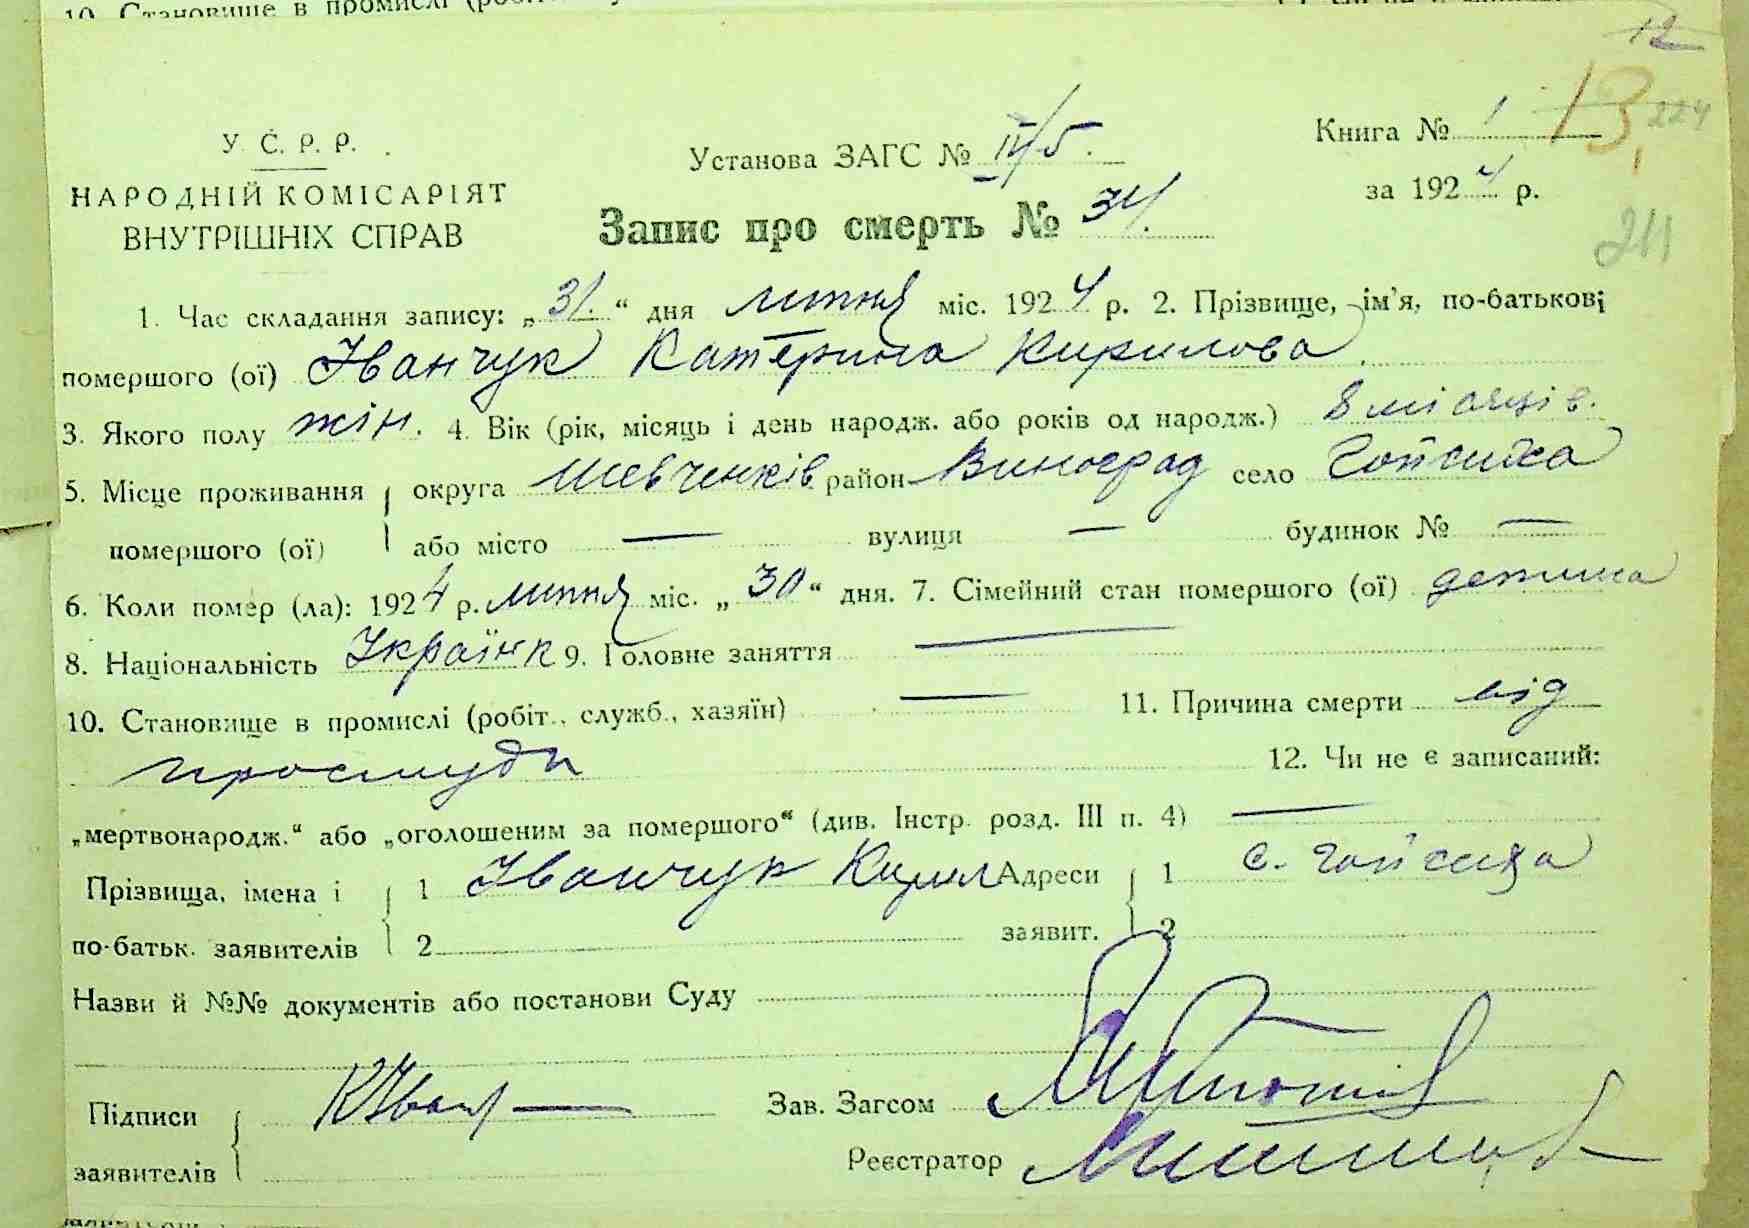 12
У. С. Р. Р.
НАРОДНІЙ КОМІСАРІЯТ
ВНУТРІШНІХ СПРАВ
Установа ЗАГС № IV/5.
Запис про смерть № 34.
Книга № 1 13 224
за 1924 р.
211
1. Час складання запису: „31.“ дня липня міс. 1924 р. 2. Прізвище, ім'я, по-батькові
помершого (ої) Іванчук Катерина Кирилова
3. Якого полу жін. 4. Вік (рік, місяць і день народж. або років од народж.) 8 місяців.
5. Місце проживання округа Шевченків район Виноград село Гопсиха
помершого (ої) або місто — вулиця — будинок № —
6. Коли помер (ла): 1924 р. липня міс. „30“ дня. 7. Сімейний стан помершого (ої) детина
8. Національність Українк 9. Головне заняття —
10. Становище в промислі (робіт., служб., хазяїн) — 11. Причина смерти від
простуди 12. Чи не є записаний:
„мертвонародж.“ або „оголошеним за помершого“ (див. Інстр. розд. III п. 4) —
Прізвища, імена і 1 Іванчук Кирил Адреси 1 с. Гопсиха
по-батьк. заявителів 2 заявит. 2
Назви й №№ документів або постанови Суду
Підписи К Іван Зав. Загсом
заявителів Реєстратор